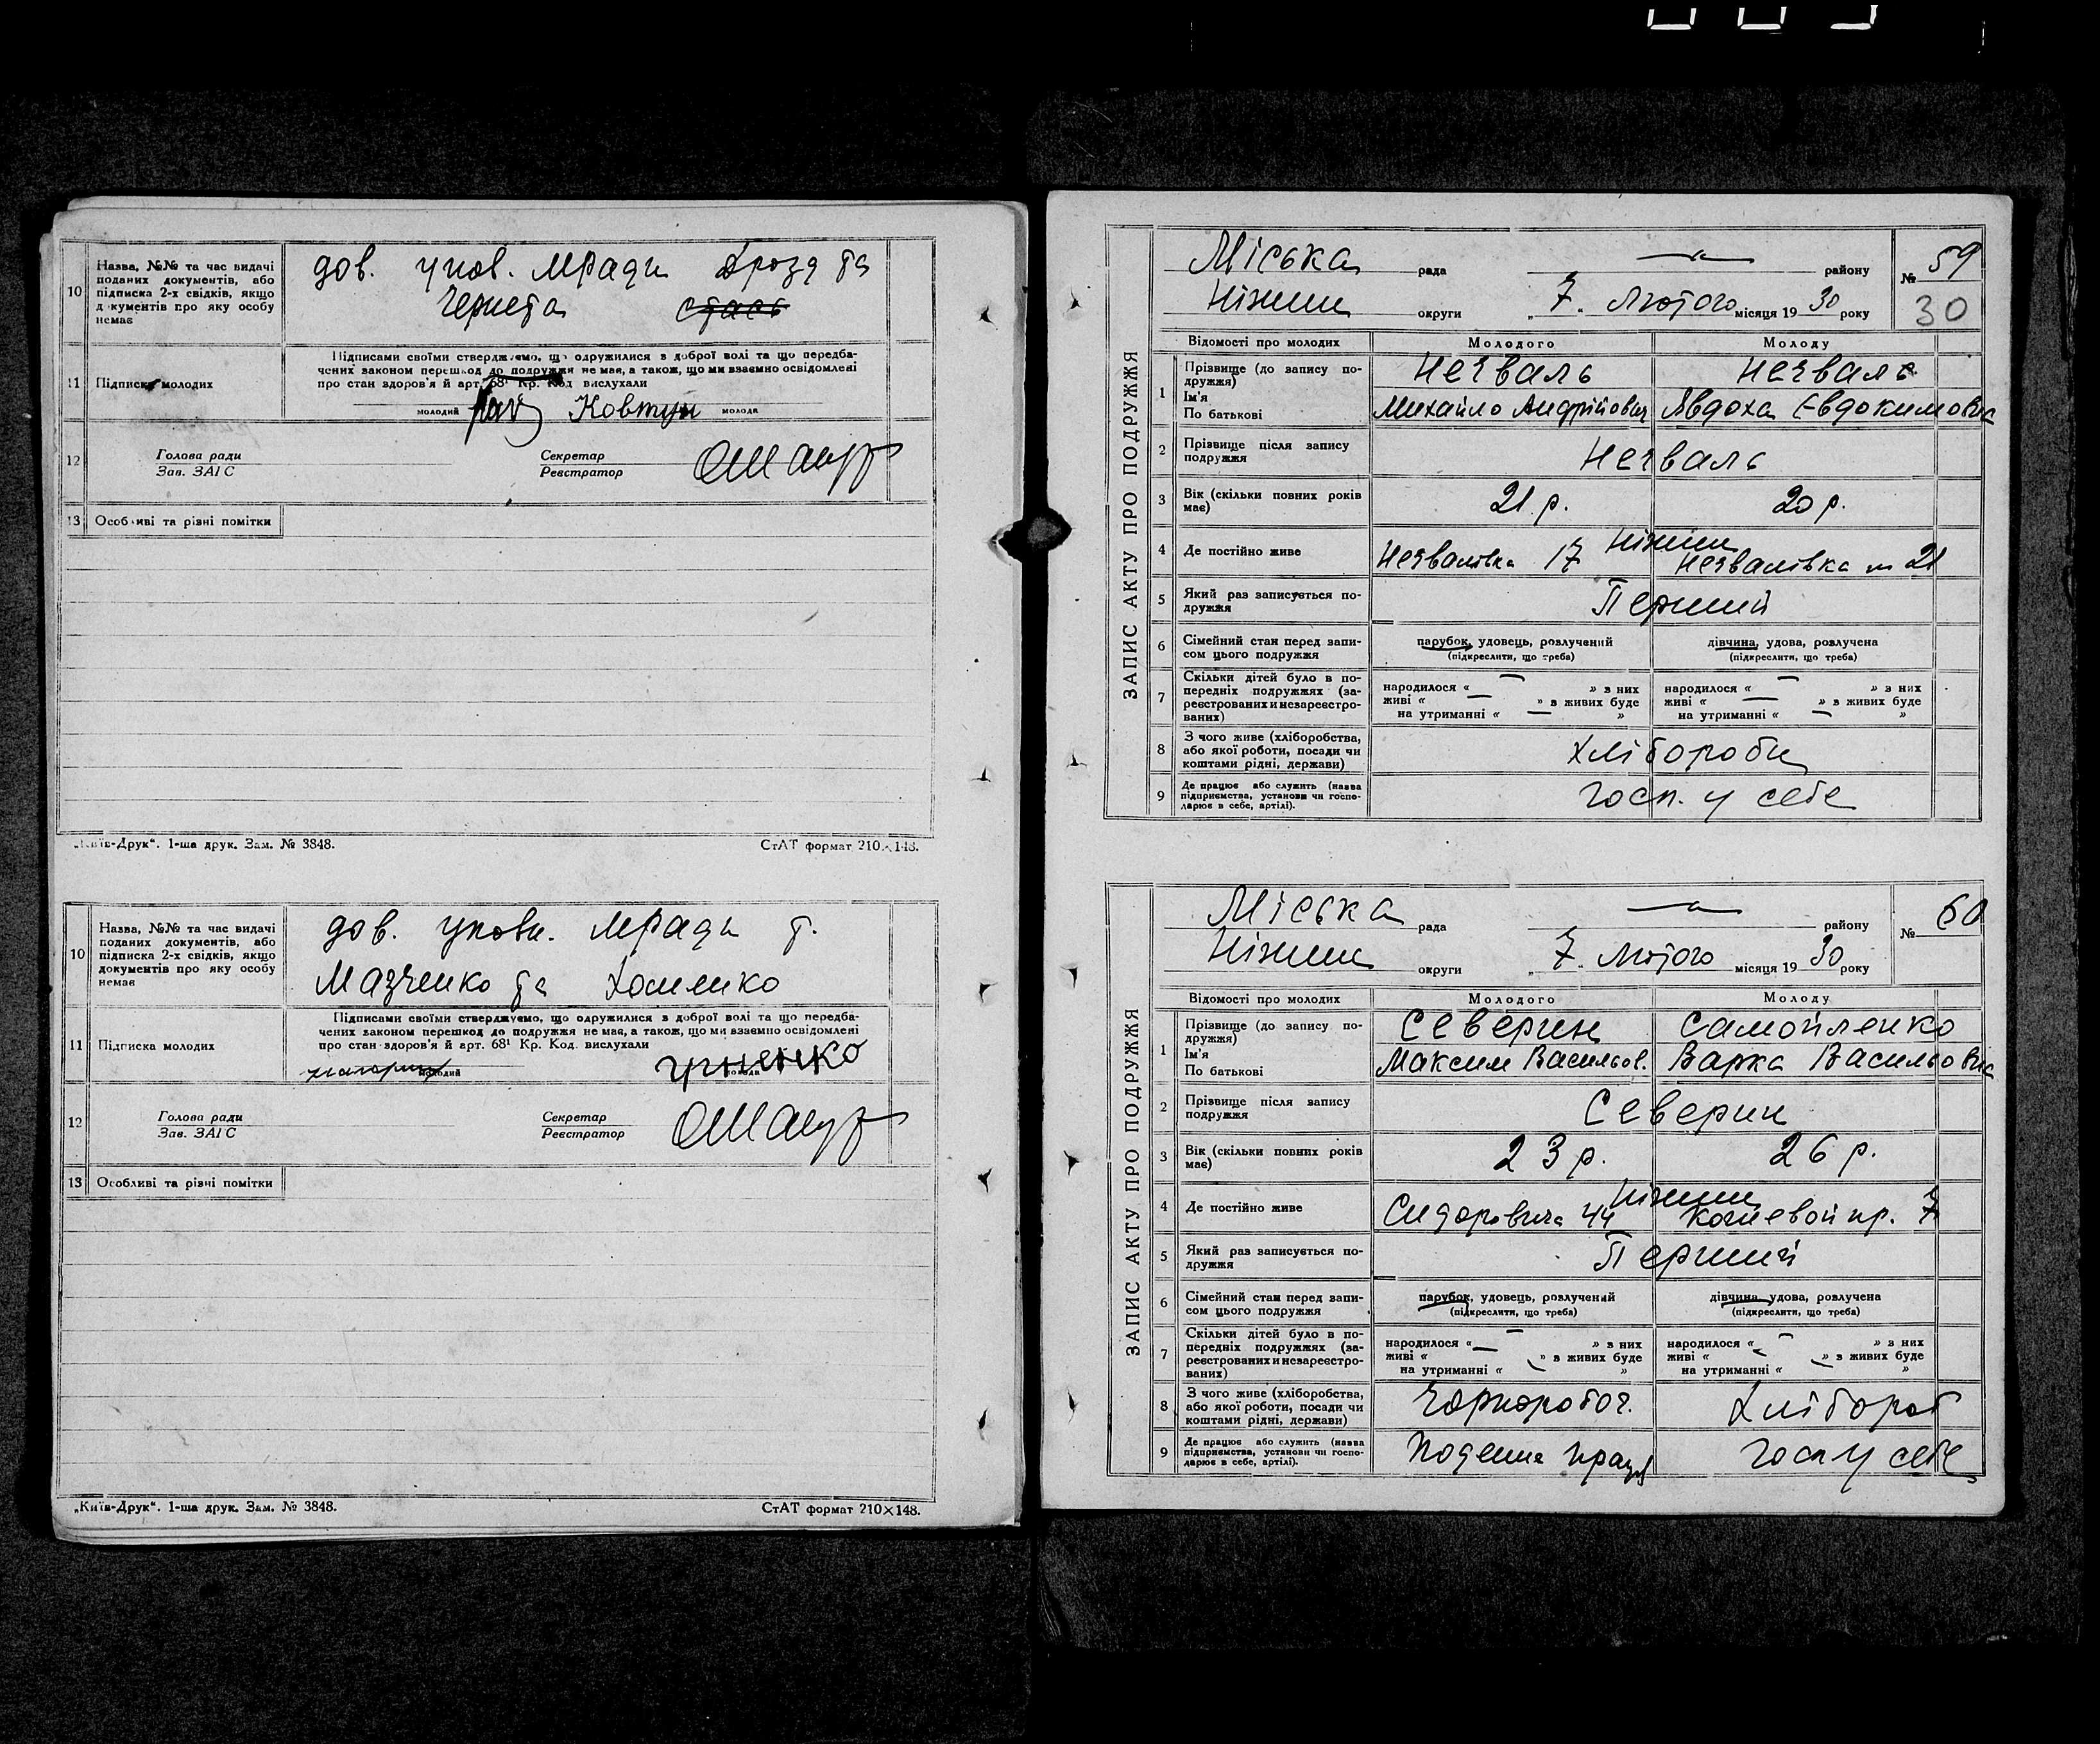 10
Назва, №№ та час видачі
поданих документів, або
підписка 2-х свідків, якщо
д кументів про яку особу
немає
дов. упов. МРади Дрозд та
Чернета стась
11
Підписка молодих
Підписами своїми стверджуємо, що одружилися з доброї волі та що передба-
чених законом перешкод до подружжя не має, а також, що ми взаємно освідомлені
про стан здоров'я й арт. 68¹ Кр. Код вислухали
молодий Ковтун молода
12
Голова ради
Зав. ЗАГС
Секретар
Реєстратор
13
Особливі та різні помітки
„Київ-Друк“. 1-ша друк. Зам. № 3848.
СтАТ формат 210×148.
10
Назва, №№ та час видачі
поданих документів, або
підписка 2-х свідків, якщо
документів про яку особу
немає
дов. уповн. МРади т.
Мазченко та Хоменко
11
Підписка молодих
Підписами своїми стверджуємо, що одружилися з доброї волі та що передба-
чених законом перешкод до подружжя не має, а також, що ми взаємно освідомлені
про стан здоров'я й арт. 68¹ Кр. Код. вислухали
молодий молода
12
Голова ради
Зав. ЗАГС
Секретар
Реєстратор
13
Особливі та різні помітки
„Київ-Друк“. 1-ша друк. Зам. № 3848.
СтАТ формат 210×148.
ЗАПИС АКТУ ПРО ПОДРУЖЖЯ
Міська рада — району № 59
Ніжин округи „ 7. Лютого місяця 1930 року 30
Відомості про молодих Молодого Молоду
1
Прізвище (до запису по-
дружжя)
Ім'я
По батькові
Незваль Незваль
Михайло Андрійович Явдоха Євдокимовна
2
Прізвище після запису
подружжя
Незваль
3
Вік (скільки повних років
має)
21 р. 20 р.
4
Де постійно живе
Ніжин
Незвалівка 17 Незвалівка 21
5
Який раз записується по-
дружжя
Перший
6
Сімейний стан перед запи-
сом цього подружжя
парубок, удовець, розлучений
(підкреслити, що треба)
дівчина, удова, розлучена
(підкреслити, що треба)
7
Скільки дітей було в по-
передніх подружжях (за-
реєстрованих и незареєстро-
ваних)
народилося « — » з них
живі « — » в живих буде
на утриманні « — »
народилося « — » з них
живі « — » в живих буде
на утриманні « — »
8
З чого живе (хліборобства,
або якої роботи, посади чи
коштами рідні, держави)
хлібороби
9
Де працює або служить (назва
підприємства, установи чи госпо-
дарює в себе, артілі).
Госп. у себе
ЗАПИС АКТУ ПРО ПОДРУЖЖЯ
Міська рада — району № 60
Ніжин округи „ 7. Лютого місяця 1930 року
Відомості про молодих Молодого Молоду
1
Прізвище (до запису по-
дружжя)
Ім'я
По батькові
Северин Самойленко
Максим Васильов. Варка Васильовна
2
Прізвище після запису
подружжя
Северин
3
Вік (скільки повних років
має)
23 р. 26 р.
4
Де постійно живе
Ніжин
Сидоровича 44 Кошевой пр. 7
5
Який раз записується по-
дружжя
Перший
6
Сімейний стан перед запи-
сом цього подружжя
парубок, удовець, розлучений
(підкреслити, що треба)
дівчина, удова, розлучена
(підкреслити, що треба)
7
Скільки дітей було в по-
передніх подружжях (за-
реєстрованих и незареєстро-
ваних)
народилося « — » з них
живі « » в живих буде
на утриманні « »
народилося « — » з них
живі « » в живих буде
на утриманні « »
8
З чого живе (хліборобства,
або якої роботи, посади чи
коштами рідні, держави)
Чорноробоч. Хлібороб
9
Де працює або служить (назва
підприємства, установи чи госпо-
дарює в себе, артілі).
Поденна Госп у себе